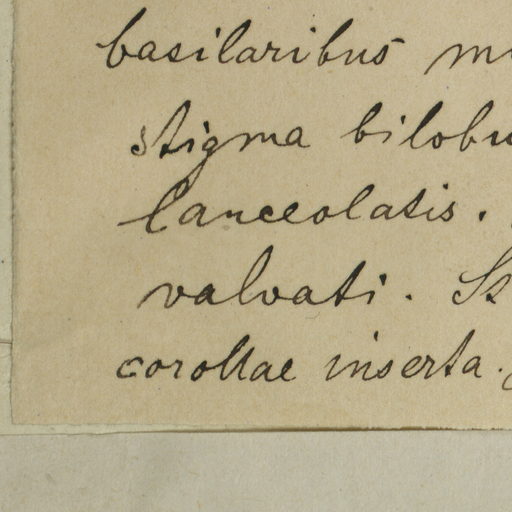 basilaribus
stigma
lanceolatis.
valvati.
corollae inserta.